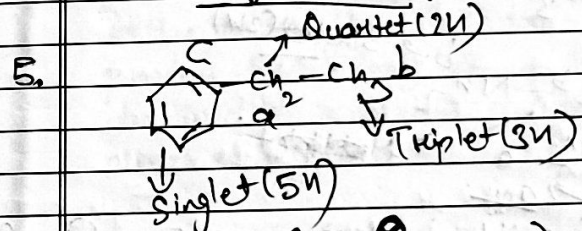 Quartet (2H)
5.
C
CH2 - CH3 b
a
Triplet (3H)
Singlet (5H)